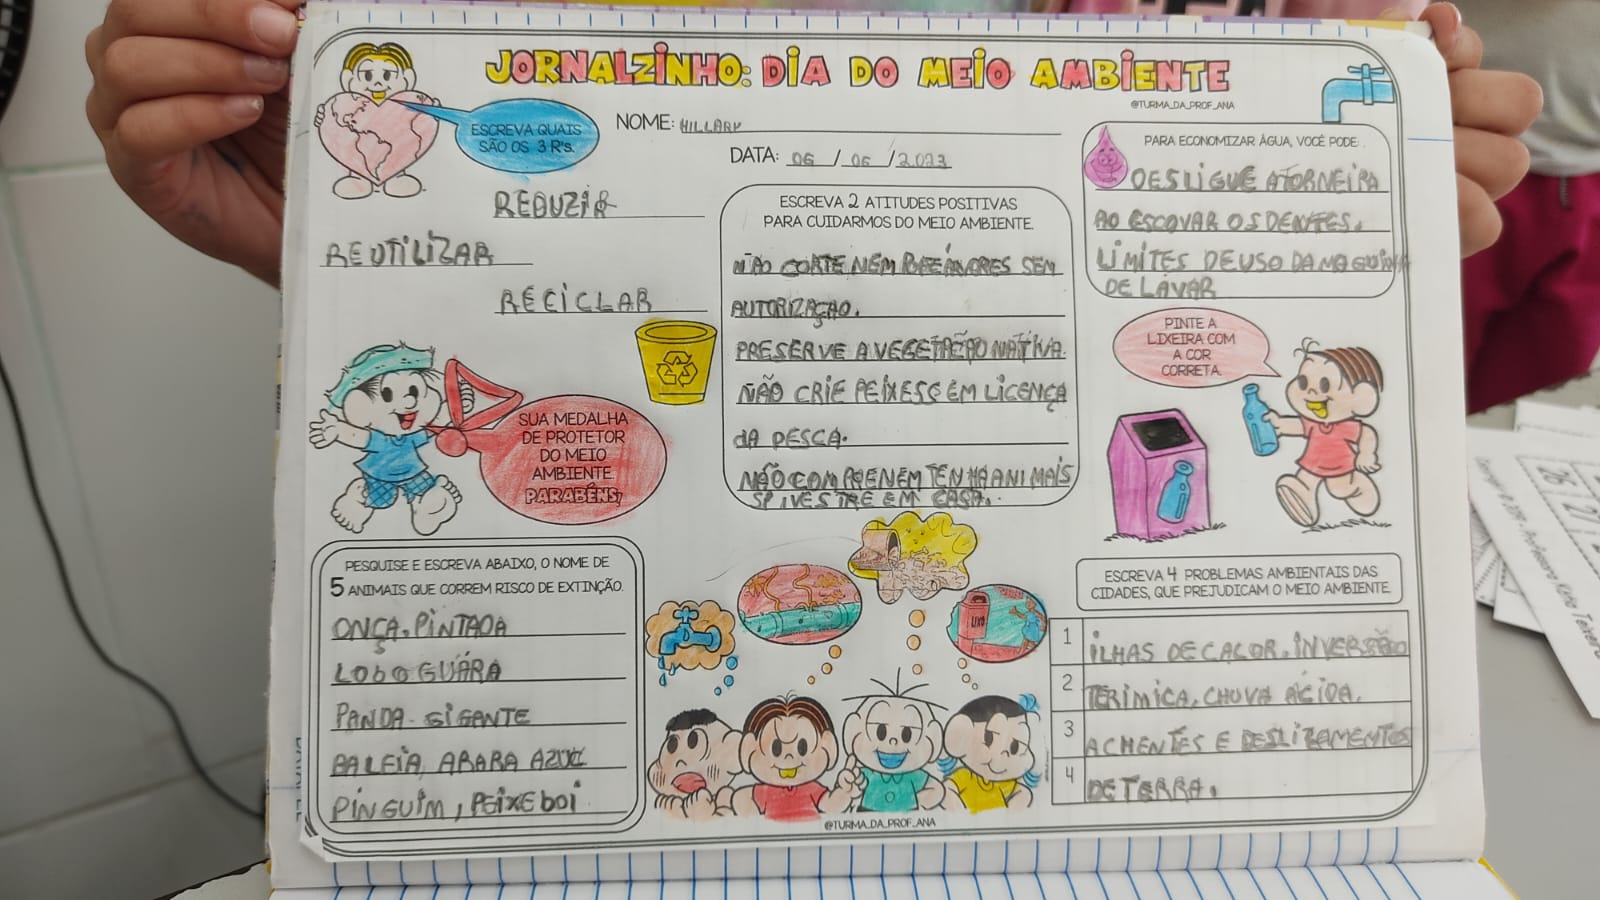 JORNALZINHO: DIA DO MEIO AMBIENTE
@TURMA_DA_PROF_ANA
ESCREVA QUAIS
SÃO OS 3 R's.
NOME: HILLARY
DATA: 06 / 06 / 2023
REDUZIR
REUTILIZAR
RECICLAR
ESCREVA 2 ATITUDES POSITIVAS
PARA CUIDARMOS DO MEIO AMBIENTE.
NÃO CORTE NEM ÁRVORES SEM
AUTORIZAÇAO.
PRESERVE A VEGETAÇÃO NATIVA.
NÃO CRIE PEIXES SEM LICENÇA
dA PESCA.
NÃO COMPRE NEM TENHA ANIMAIS
SPIVESTRE EM CASA.
PARA ECONOMIZAR ÁGUA, VOCÊ PODE:
DESLIGUE A TORNEIRA
AO ESCOVAR OS DENTES.
LIMITES DE USO DA MAQUINA
DE LAVAR
SUA MEDALHA
DE PROTETOR
DO MEIO
AMBIENTE.
PARABÉNS,
PINTE A
LIXEIRA COM
A COR
CORRETA.
PESQUISE E ESCREVA ABAIXO, O NOME DE
5 ANIMAIS QUE CORREM RISCO DE EXTINÇÃO.
ONÇA-PINTADA
LOBO GUÁRA
PANDA-GIGANTE
BALEIA, ARARA AZUL
PINGUIM, PEIXE boi
LIXO
ESCREVA 4 PROBLEMAS AMBIENTAIS DAS
CIDADES, QUE PREJUDICAM O MEIO AMBIENTE.
1 ILHAS DE CALOR, INVERSÃO
2 TERIMICA, CHUVA ÁCIDA,
3 ACHENTES E DESLIZAMENTOS
4 DE TERRA.
@TURMA_DA_PROF_ANA